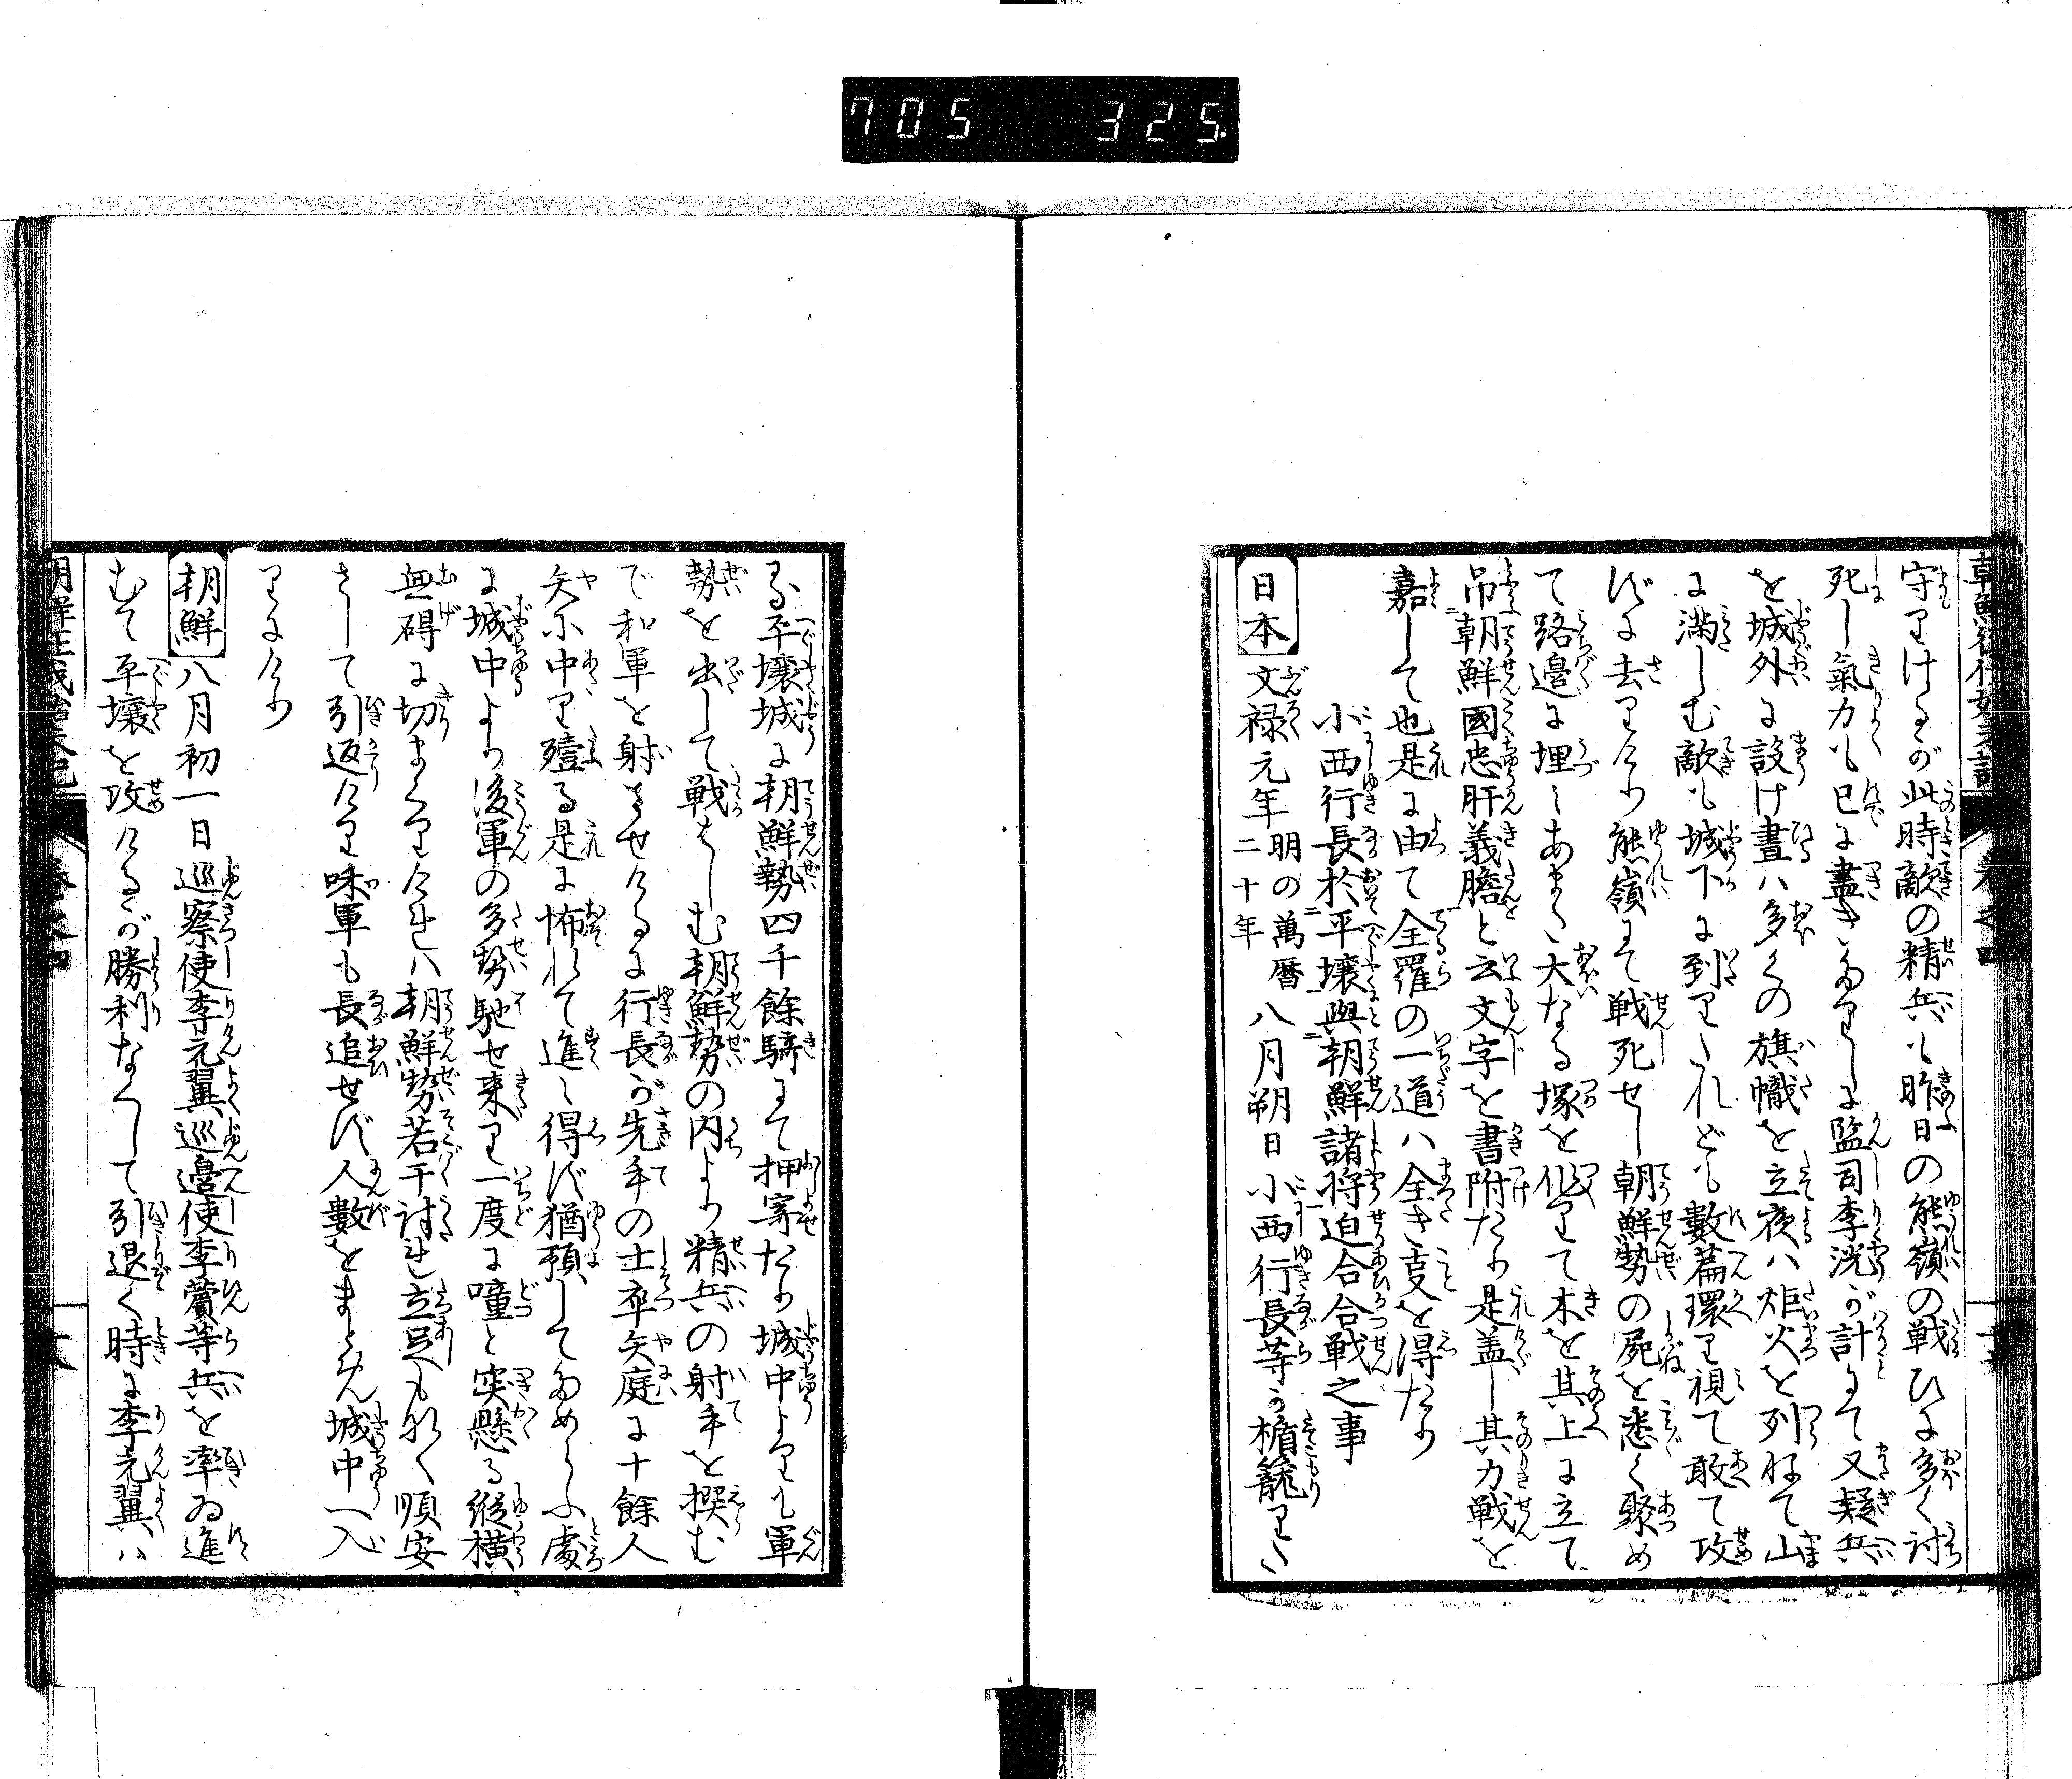 705 325
守りけるが此時敵の精兵も昨日の熊嶺の戦ひに多く討
死し氣力も已に盡きゐりしに監司李洸が計にて又疑兵
を城外に設け晝ハ多くの旗幟を立夜ハ炬火を列ねて山
に満しむ敵も城下に到りたれども數篇環り視て敢て攻
ずに去りけり熊嶺にて戦死せし朝鮮勢の屍を悉く聚め
て路邊に埋ミあまた大なる塚を作りて木を其上に立て
吊朝鮮國忠肝義膽と云文字を書附たり是盖し其力戦を
嘉して也是に由て全羅の一道ハ全き支を得たり
小西行長於平壌與朝鮮諸將迫合合戦之事
日本 文禄元年 明の萬暦二十年 八月朔日小西行長等が楯籠りた
る平壌城に朝鮮勢四千餘騎にて押寄たり城中よりも軍
勢を出して戦はしむ朝鮮勢の内より精兵の射手を撰む
で和軍を射させけるに行長が先手の士卒矢庭に十餘人
矢に中り殪る是に怖れて進ミ得ず猶預してためらふ處
に城中より後軍の多勢馳せ来り一度に噇と突懸る縦横
無碍に切まくりけれハ朝鮮勢若干討れ立足もなく順安
さして引返けり味軍も長追せず人數をまとめ城中へ入
りにけり
朝鮮 八月初一日巡察使李元翼巡邊使李薲等兵を率ゐ進
むて平壌を攻けるが勝利なくして引退く時に李元翼ハ